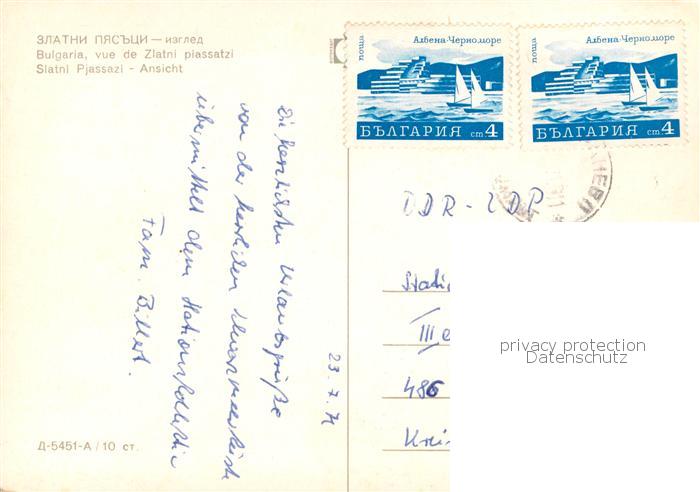 ЗЛАТНИ ПЯСЪЦИ — изглед
Bulgaria, vue de Zlatni piassatzi
Slatni Pjassazi - Ansicht
поща
Албена-Черноморе
БЪЛГАРИЯ ст 4
поща
Албена-Черноморе
БЪЛГАРИЯ ст 4
Die herzlichsten Urlaubsgrüße
von der herrlichen Schwarzmeerküste
übermittelt dem Stationskollektiv
Fam. Billert.
23.7.71
DDR-ZDP
Stati
III
486
Kreis
privacy protection
Datenschutz
Д-5451-А / 10 ст.